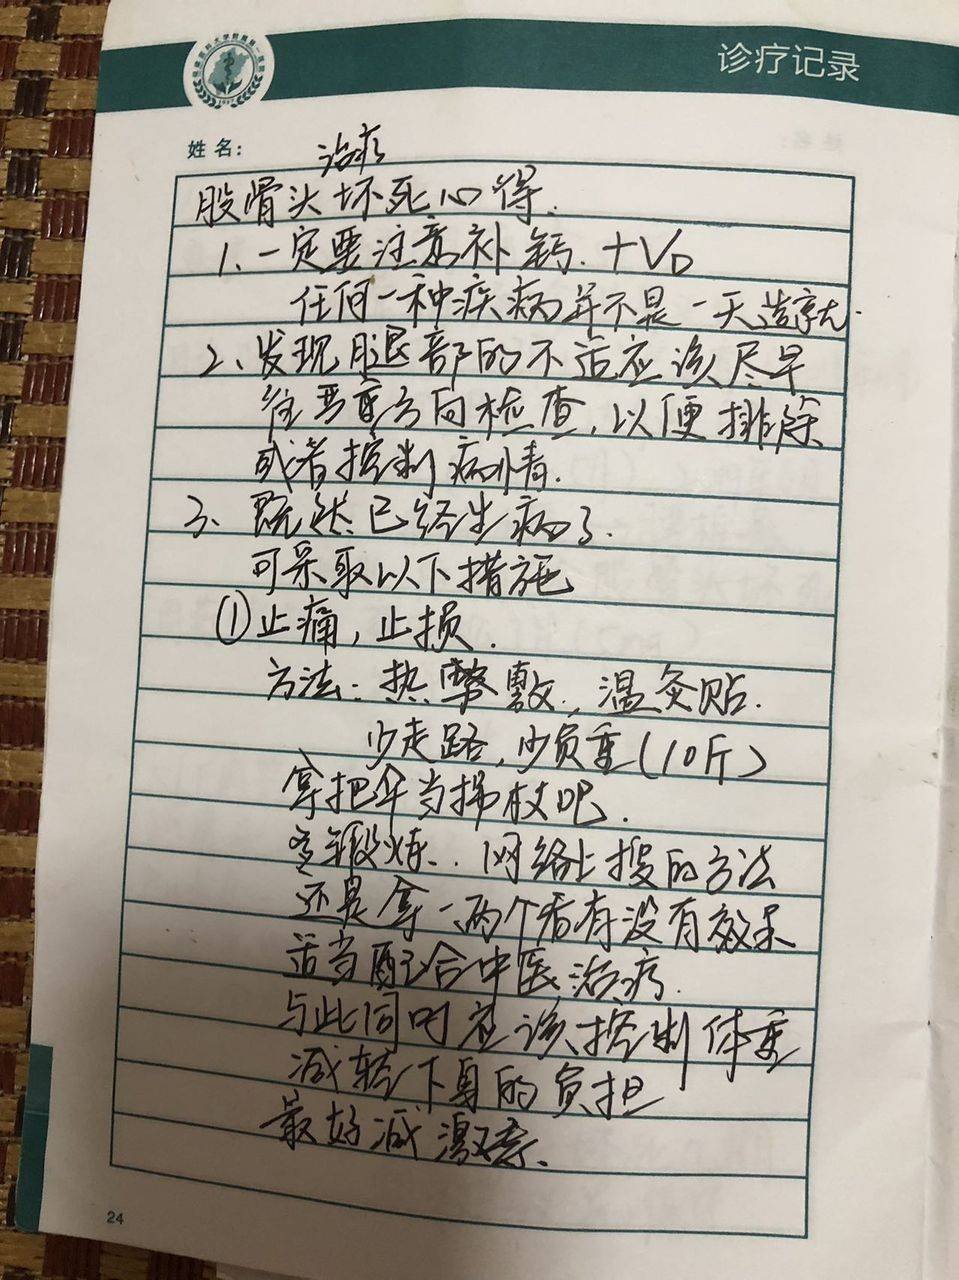 诊疗记录
姓名:
治疗
股骨头坏死心得.
1、一定要注意补钙.+VD
任何一种疾病并不是一天造就.
2、发现腿部的不适应该尽早
往严重方向检查,以便排除
或者控制病情.
3、既然已经生病了.
可采取以下措施
①止痛,止损.
方法:热敷,温灸贴.
少走路,少负重(10斤)
拿把伞当拐杖吧.
多锻炼.网络上搜的方法
还是拿一两个看有没有效果
适当配合中医治疗.
与此同时应该控制体重
减轻下身的负担
最好减激素.
24